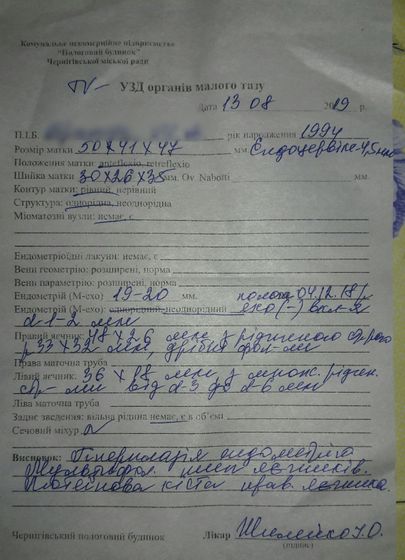 Комунальне некомерційне підприємство
"Пологовий будинок"
Чернігівської міської ради
TV УЗД органів малого тазу
Дата 13 08 2019 р.
П.І.Б. рік народження 1994
Розмір матки 50 x 41 x 47 мм. Ендоцервікс-4,5 мм
Положення матки: anteflexio, retroflexio
Шийка матки 30x26x35 мм. Ov. Nabothi мм.
Контур матки: рівний, нерівний
Структура: однорідна, неоднорідна
Міоматозні вузли: немає, є
Ендометріоїдні лакуни: немає, є
Вени геометрію: розширені, норма
Вени параметрію: розширені, норма
Ендометрій (М-ехо) 19-20 мм. пологи 04.12.18 р
Ендометрій (М-ехо): однорідний, неоднорідний ехо (-) вкл-я
d-1-2 мм
Правий яєчник: x 26 мм, з рідинною
33 x 32 мм, дрібні фол-ли
Права маткова труба
Лівий яєчник: 36 x 18 мм, з множ. рідин.
стр-ми від d-3 до d-6 мм
Ліва маткова труба
Заднє зведення: вільна рідина немає, є в об'ємі
Сечовий міхур N
Висновок: Гіперплазія ендометрія
Мультифол. яєчників.
Лютеїнова кіста прав. яєчника.
Чернігівський пологовий будинок Лікар
(підпис)